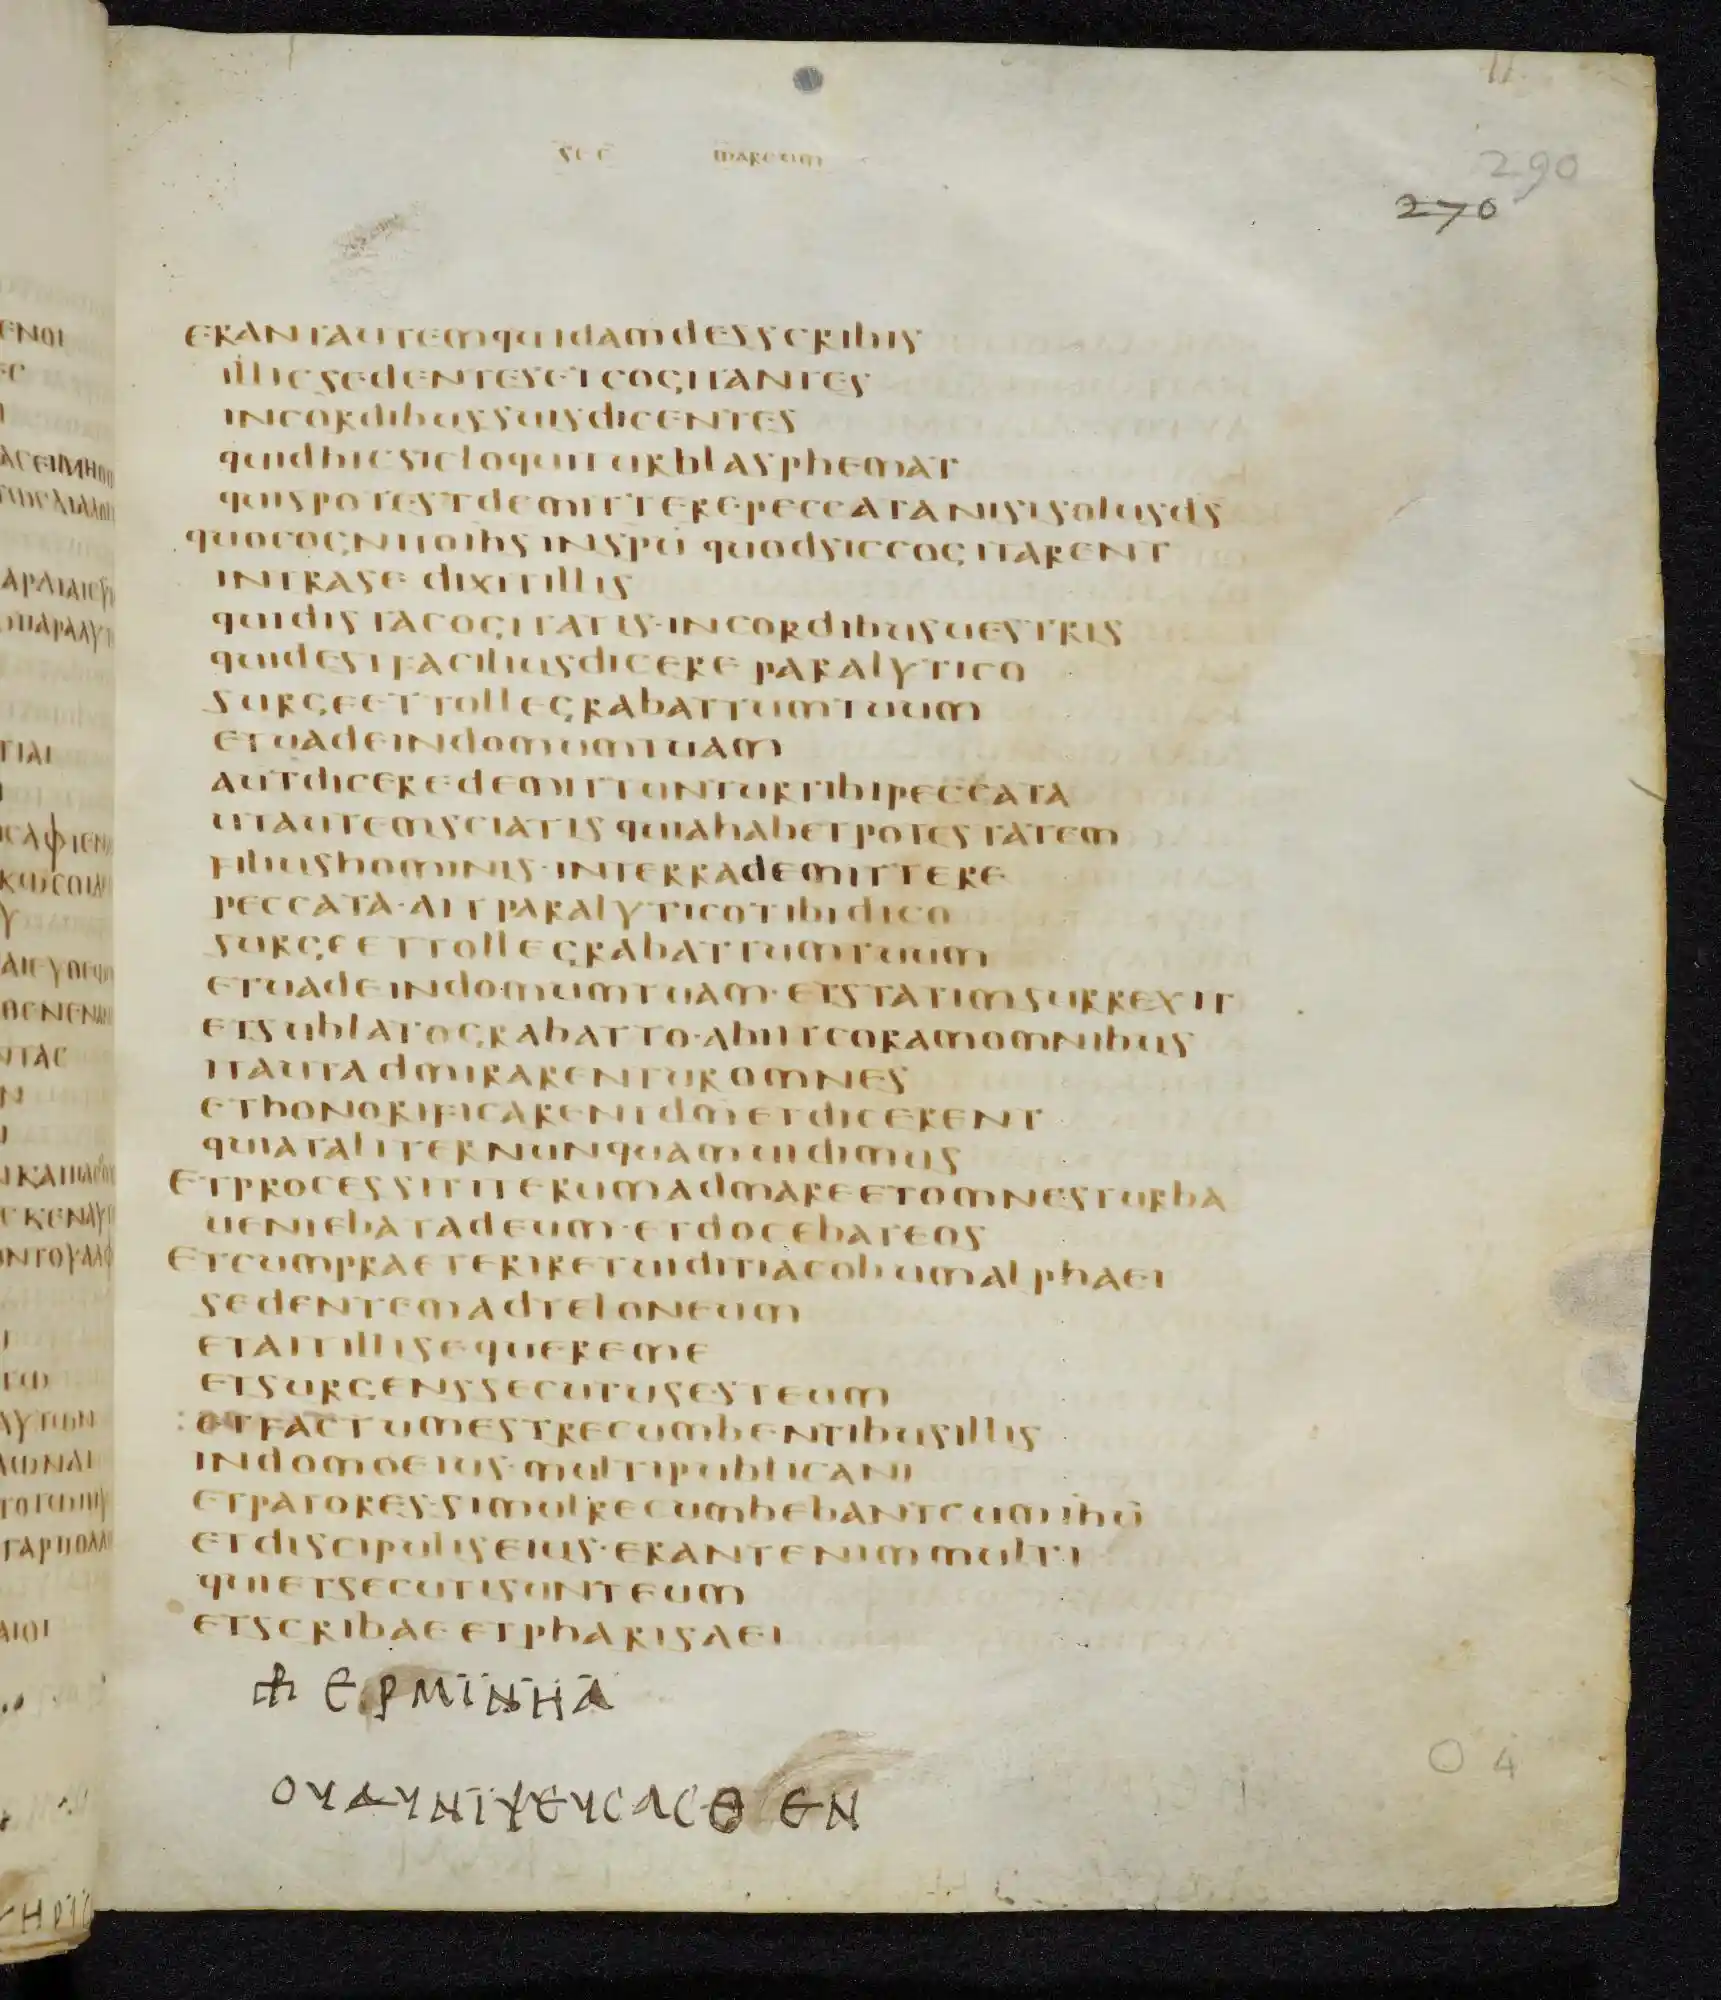 sec marcum
290
270
erantautemquidamdesscribis
illicsedentesetcogitantes
incordibussuisdicentes
quidhicsicloquiturblasphemat
quispotestdemitterepeccatanisisolusds
quocognitoihs inspu quodsiccogitarent
intrase dixitillis
quidistacogitatis·incordibusuestris
quidestfaciliusdicere paralytico
surgeettollegrabattumtuum
etuadeindomumtuam
autdiceredemittunturtibipeccata
utautemsciatis quiahabetpotestatem
filiushominis·interrademittere
peccata·aitparalyticotibidico
surgeettollegrabattumtuum
etuadeindomumtuam·etstatimsurrexit
etsublatograbatto·abiitcoramomnibus
itautadmirarenturomnes
ethonorificarentdm̄etdicerent
quiataliternunquamuidimus
Etprocessititerumadmareetomnesturba
ueniebatadeum·etdocebateos
Etcumpraeteriretuiditiacobumalphaei
sedentemadteloneum
etaitillisequereme
etsurgenssecutusesteum
etfactumestrecumbentibusillis
indomoeius·multipublicani
etpatores·simulrecumbebantcumihū
etdiscipuliseius·erantenimmulti
quietsecutisunteum
etscribaeetpharisaei
ЄΡΜΪΝΗΑ
ΟΥΔΥΝΪΨЄΥCΑCΘ ЄΝ
04